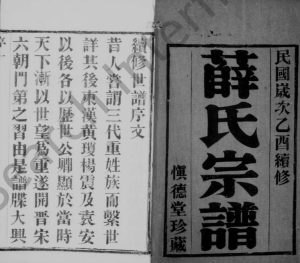 民國歲次乙酉續修
薛氏宗譜
慎德堂珍藏
續修世譜序文
昔人嘗謂三代重姓族而繫世
詳其後東漢黃瓊楊震及袁安
以後各以歷世公卿顯於當時
天下漸以世望為重遂開晉宋
六朝門第之習由是譜牒大興